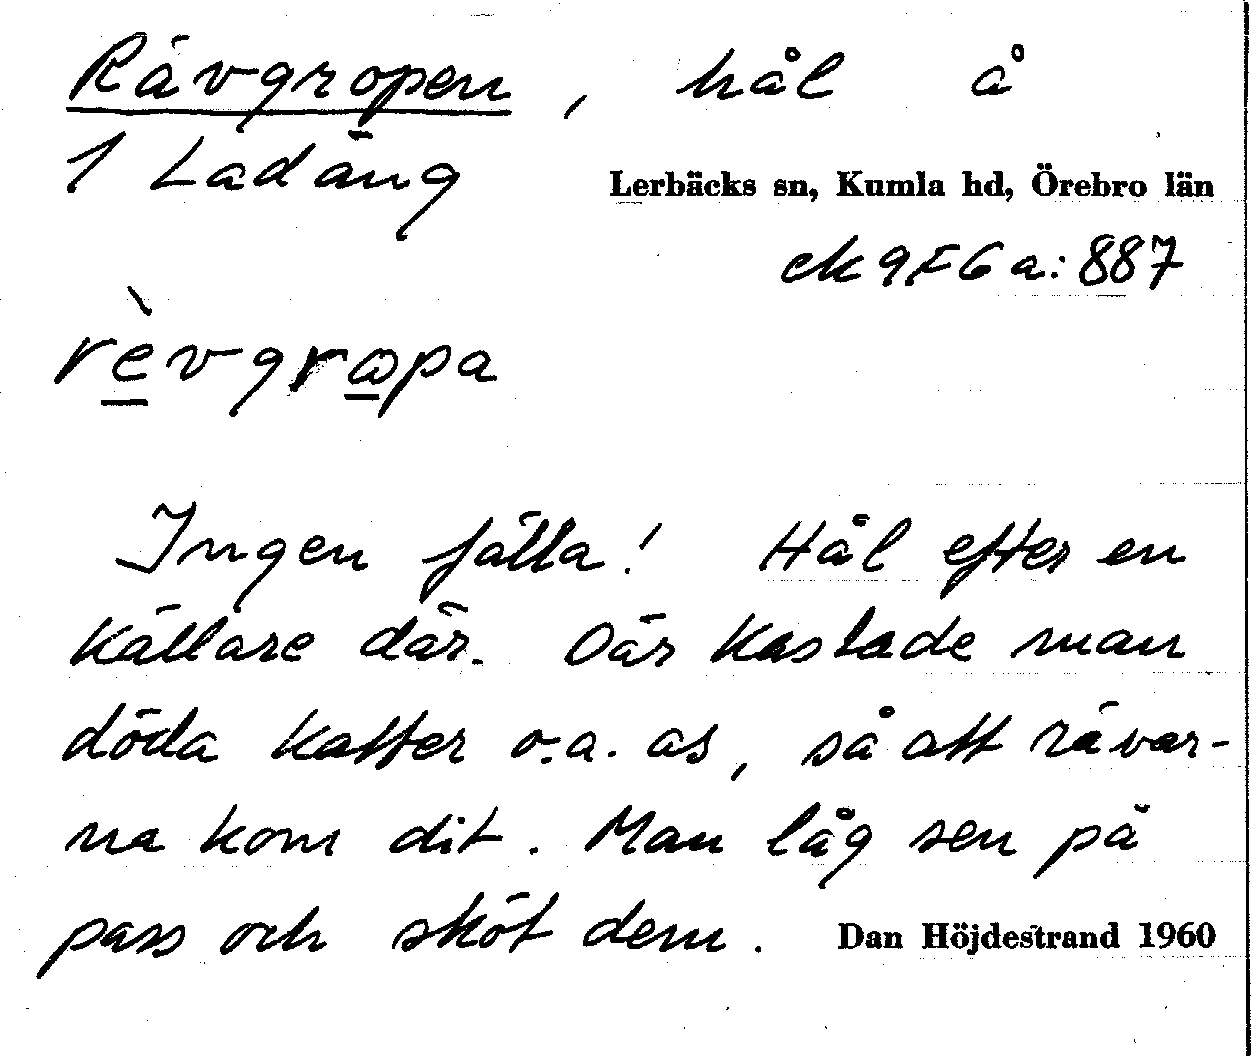 Rävgropen, hål å
1 Ladäng
Lerbäcks sn, Kumla hd, Örebro län
ek 9F6a:887
rèvgropa
Ingen fälla! Hål efter en
källare där. Där kastade man
döda katter o.a. as, så att rävar-
na kom dit. Man låg sen på
pass och sköt dem. Dan Höjdestrand 1960